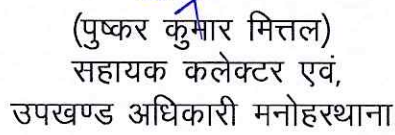 (पुष्कर कुमार मित्तल)
सहायक कलेक्टर एवं,
उपखण्ड अधिकारी मनोहरथाना